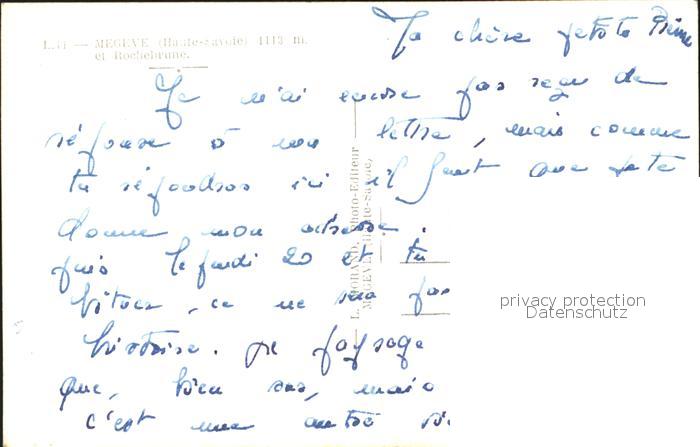 L.11 — MEGÈVE (Haute-Savoie) 1113 m.
et Rochebrune.
Ma chère petite
Je n'ai encore pas reçu de
réponse à ma lettre, mais comme
tu répondras ici il faut que je te
donne mon adresse.
puis le jeudi 20 et tu
ce ne sera pas
histoire. Le paysage
que, bien sûr, mais
c'est une autre
L. MORAND, Photo-Editeur
MEGÈVE, Haute-Savoie,
privacy protection
Datenschutz